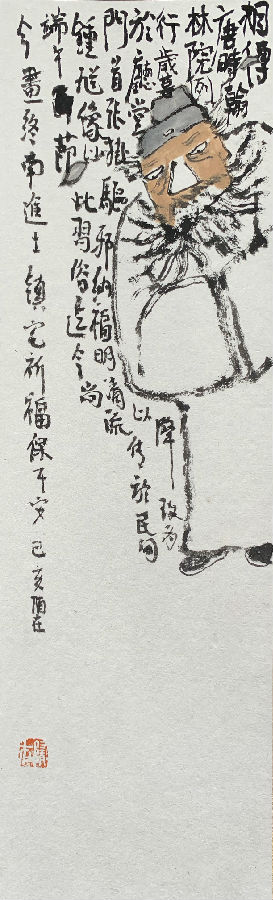 相傳
唐時翰
林院例
行歲暮
降改為
於廳堂
以傳於民間
門首張掛驅邪納福明清流
鍾馗像以此習俗迄今尚
端午節
今畫終南進士鎮宅祈福保平安己亥